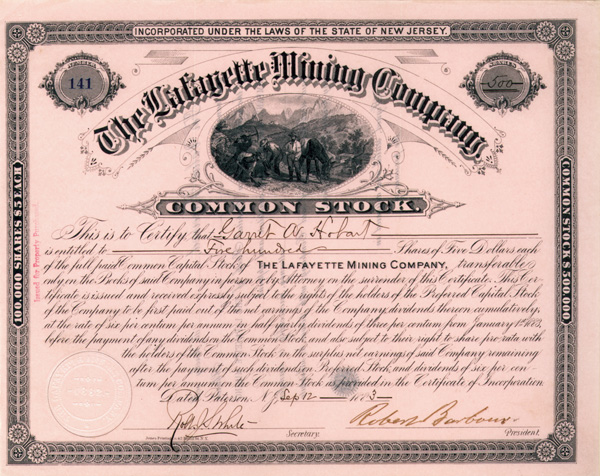 INCORPORATED UNDER THE LAWS OF THE STATE OF NEW JERSEY.
NUMBER
141
SHARES
500
The Lafayette Mining Company
COMMON STOCK.
100,000 SHARES $5 EACH
COMMON STOCK $500,000
Issued for Property Purchased
This is to Certify that Garret A. Hobart
is entitled to Five hundred Shares of Five Dollars each
of the full paid Common Capital Stock of THE LAFAYETTE MINING COMPANY, transferable
only on the Books of said Company in person or by Attorney on the surrender of this Certificate. This Cer-
tificate is issued and received expressly subject to the rights of the holders of the Preferred Capital Stock
of the Company to be first paid out of the net earnings of the Company, dividends thereon cumulatively,
at the rate of six per centum per annum in half yearly dividends of three per centum from January 1st 1883,
before the payment of any dividends on the Common Stock and also subject to their right to share pro-rata with
the holders of the Common Stock in the surplus net earnings of said Company remaining
after the payment of such dividends on Preferred Stock, and dividends of six per cen-
tum per annum on the Common Stock as provided in the Certificate of Incorporation.
Dated Paterson N.J. Sep 12 1883
White
Secretary.
Robert Barbour
President.